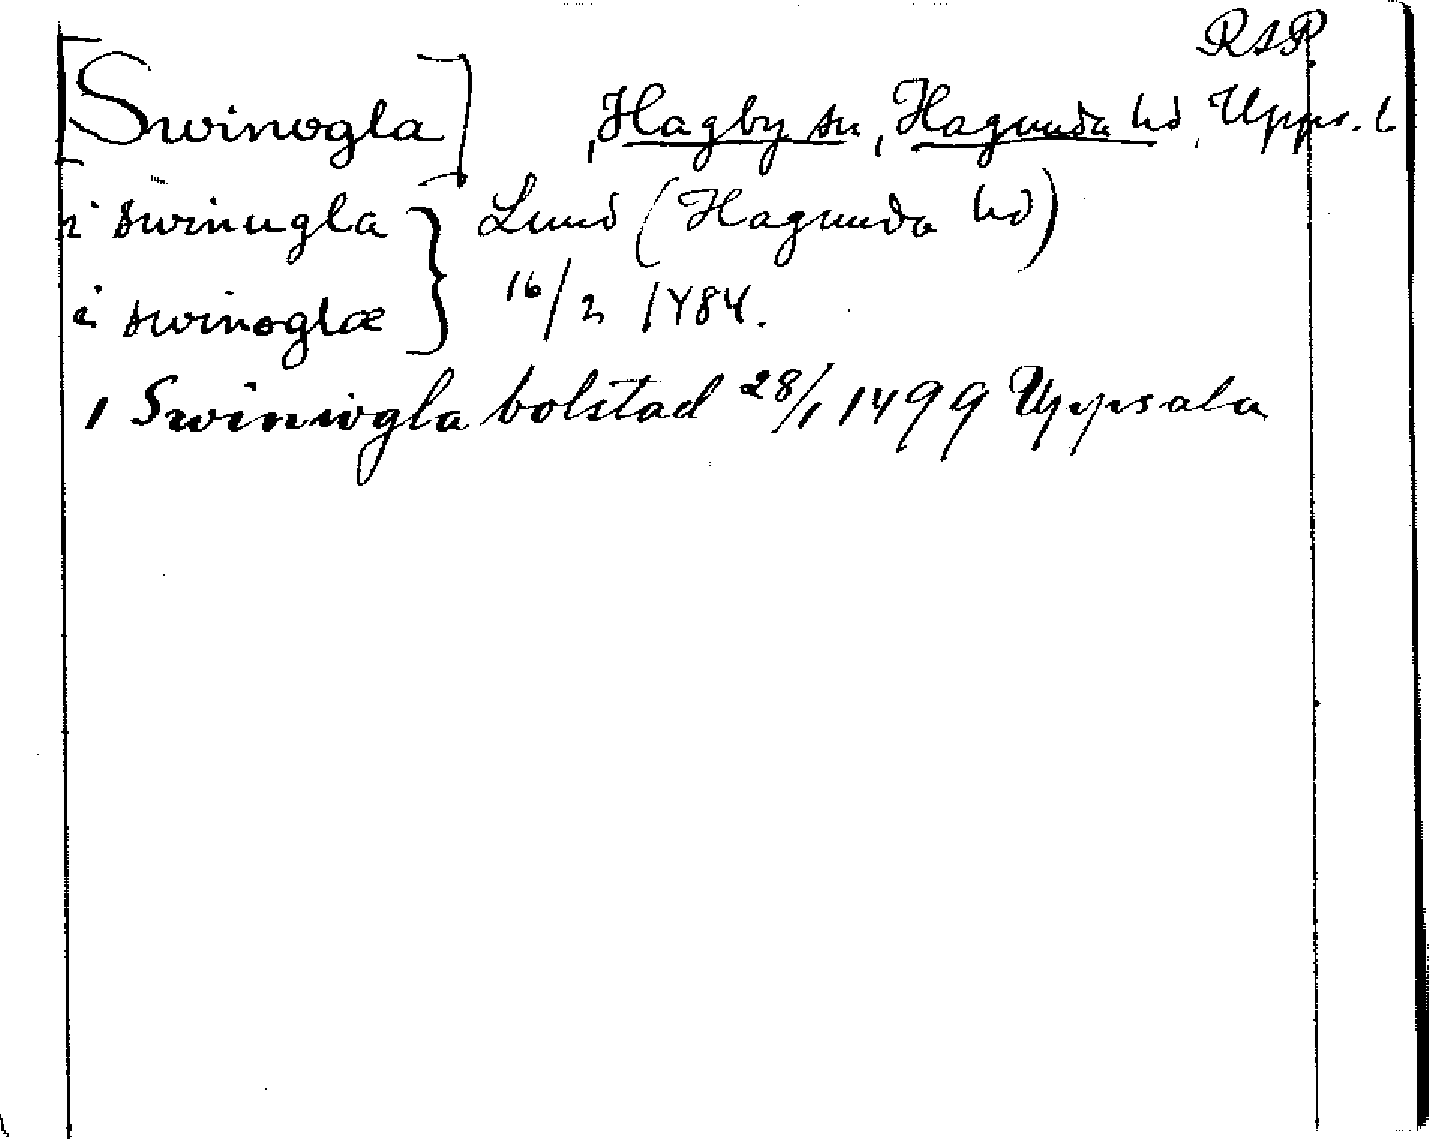 RAP.
[Swinogla] , Hagby sn, Hagunda hd, Upps. l
i swinugla } Lund (Hagunda hd)
i swinoglæ 16/2 1484.
i Swiniogla bolstad 28/1 1499 Uppsala